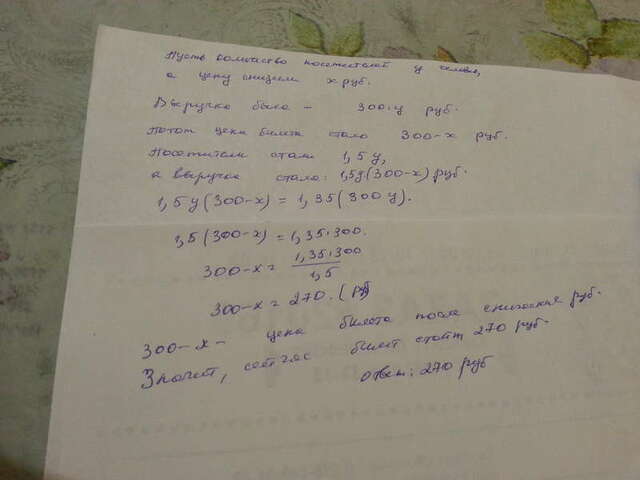 Пусть количество посетителей y человек,
а цену снизили x руб.
Выручка была - 300·y руб.
Потом цена билета стала 300-x руб.
Посетители стали 1,5y,
а выручка стала: 1,5y·(300-x) руб.
1,5y(300-x) = 1,35(300y).
1,5(300-x) = 1,35·300.
300-x = 1,35·300 / 1,5
300-x = 270. (руб)
300-x - цена билета после снижения руб.
Значит, сейчас билет стоит 270 руб.
ответ: 270 руб